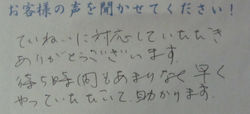 お客様の声を聞かせてください！
ていねいに対応していただき
ありがとうございます。
待ち時間もあまりなく早く
やっていただいて、助かります。